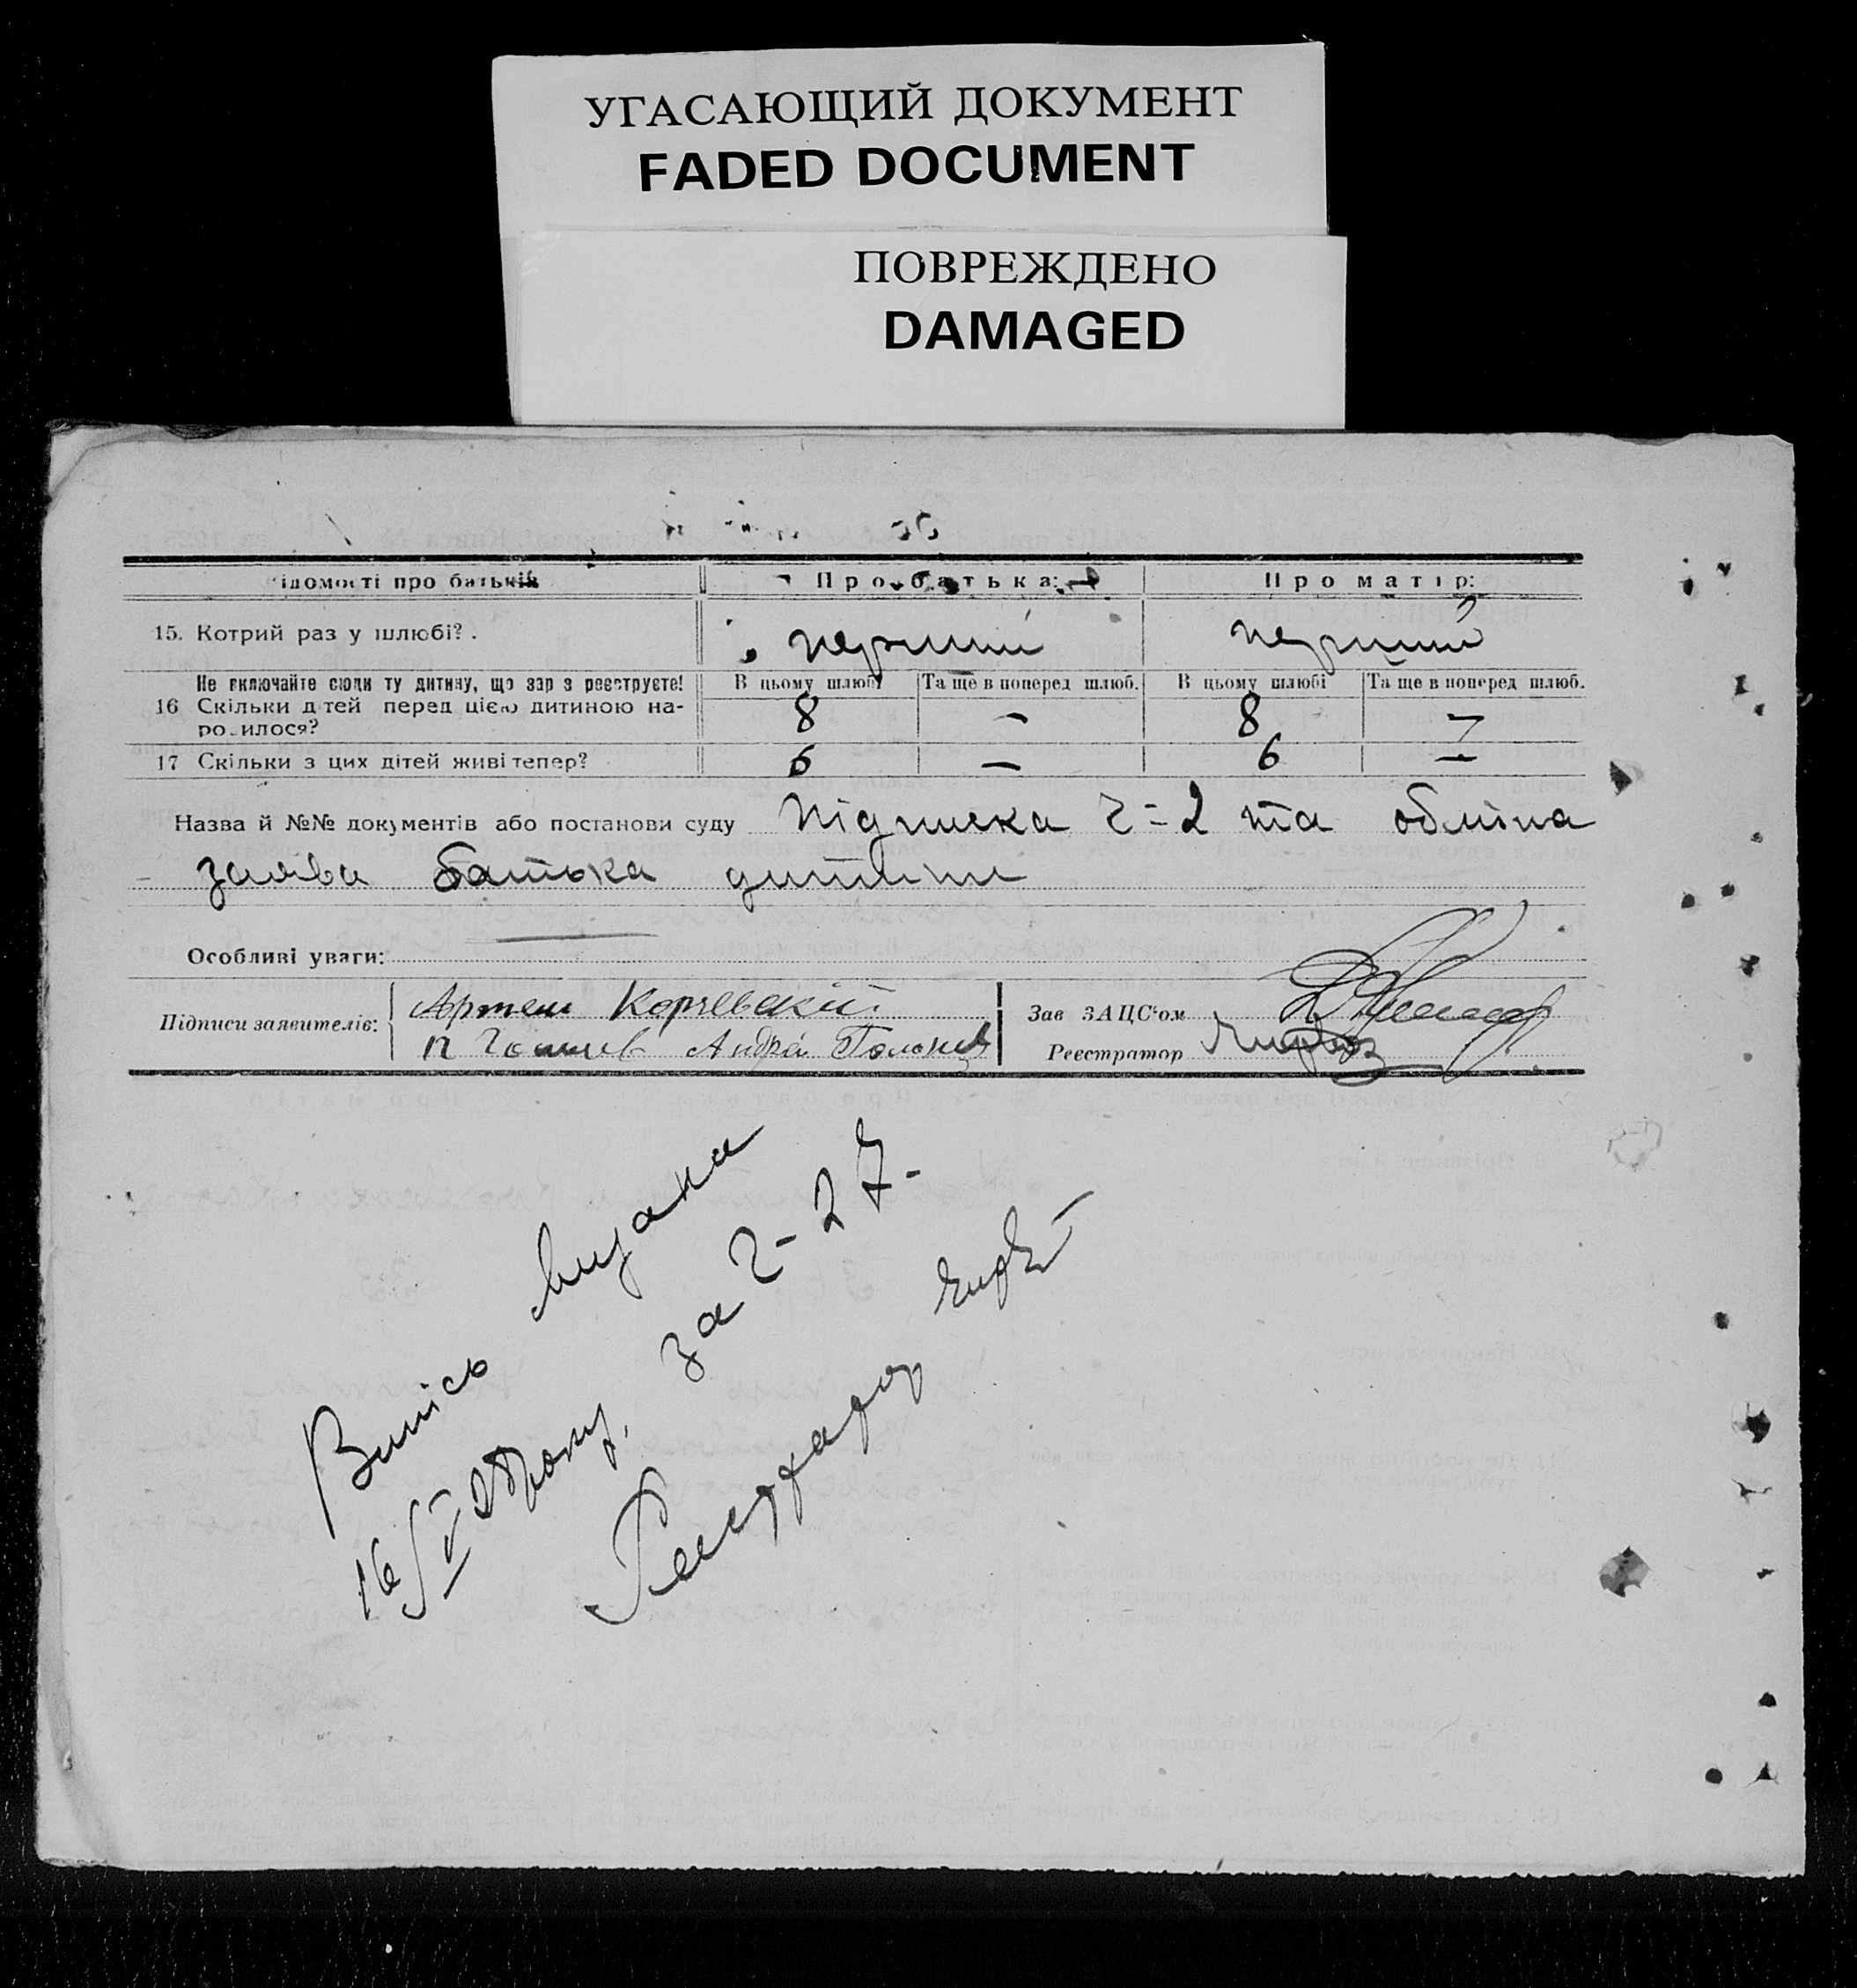 УГАСАЮЩИЙ ДОКУМЕНТ
FADED DOCUMENT
ПОВРЕЖДЕНО
DAMAGED
ідомості про батьків Про батька: Про матір:
15. Котрий раз у шлюбі? перший перший
Не включайте сюди ту дитину, що зараз реєструєте! В цьому шлюбі Та ще в поперед шлюб. В цьому шлюбі Та ще в поперед шлюб.
16 Скільки дітей перед цією дитиною на- 8 — 8 —
родилося?
17 Скільки з цих дітей живі тепер? 6 — 6 —
Назва й №№ документів або постанови суду Підписка ч-2 та
заява батька дитини
Особливі уваги:
Підписи заявителів: Артем Корчевскій Зав ЗАЦС'ом
Андрій Реєстратор
Випись видана
16/V 28 року, за ч-27-
Реєстратор